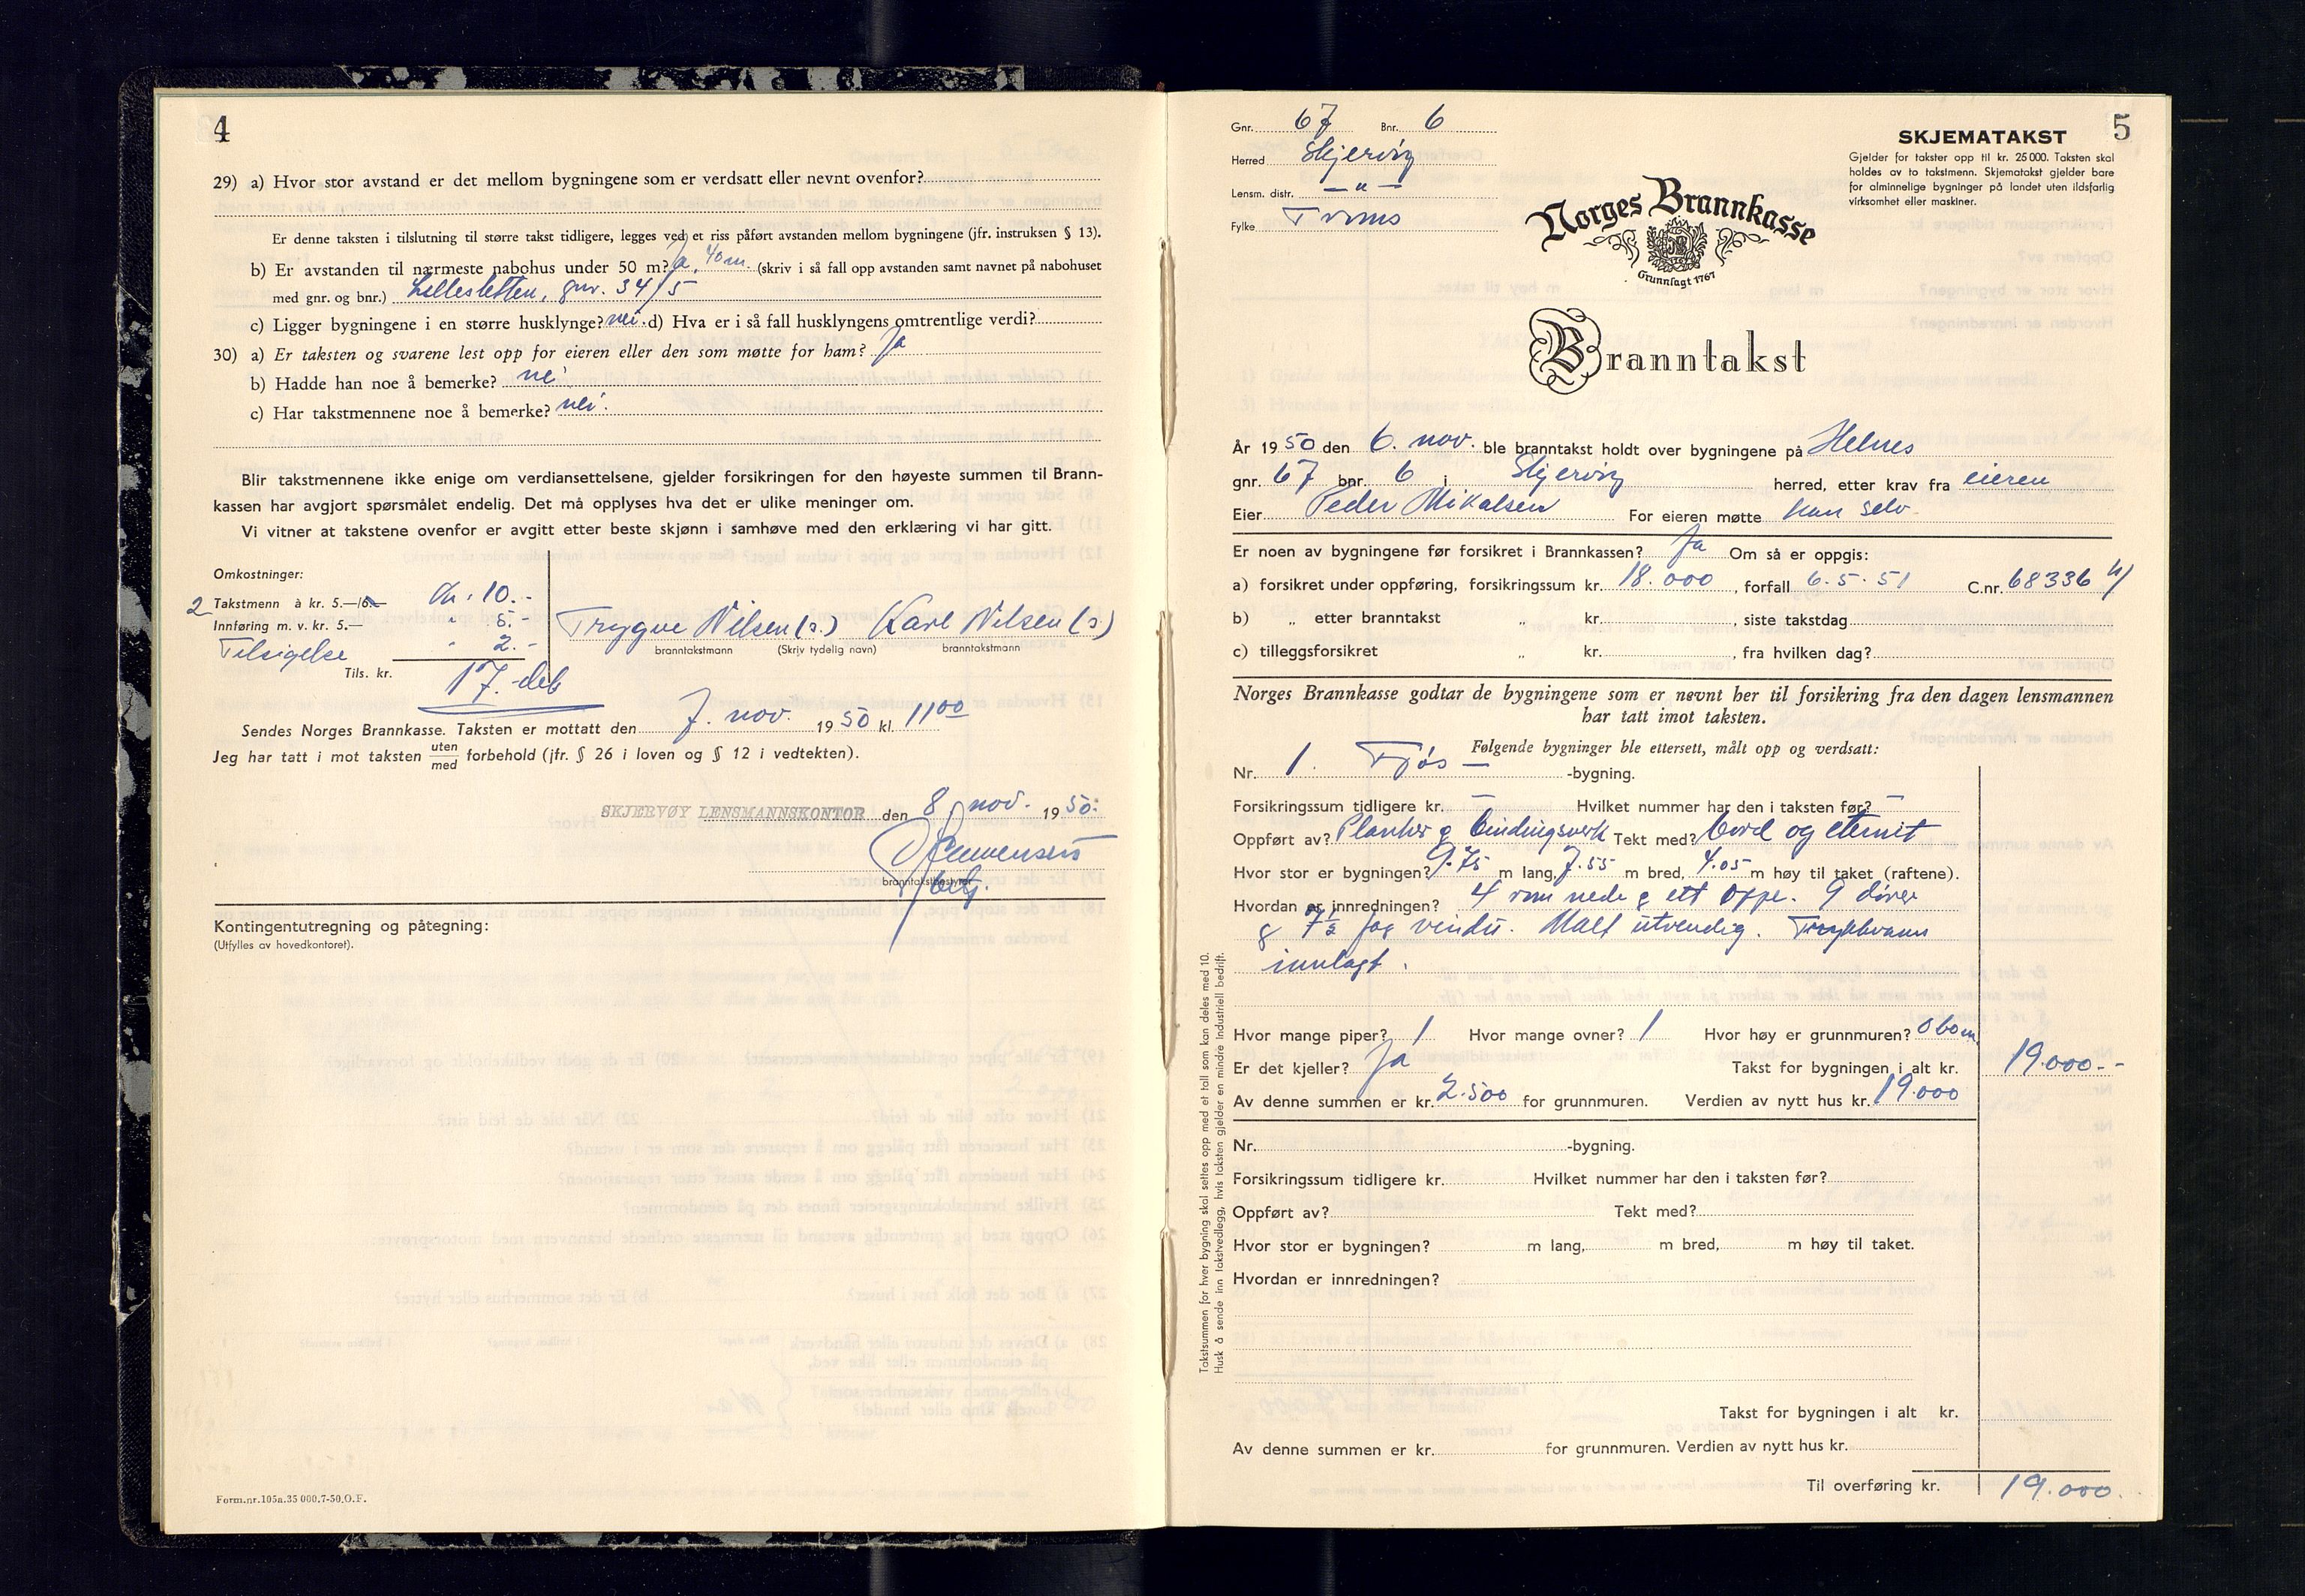 4
29) a) Hvor stor avstand er det mellom bygningene som er verdsatt eller nevnt ovenfor?
Er denne taksten i tilslutning til større takst tidligere, legges ved et riss påført avstanden mellom bygningene (jfr. instruksen § 13).
b) Er avstanden til nærmeste nabohus under 50 m? Ja, 40 m. (skriv i så fall opp avstanden samt navnet på nabohuset
med gnr. og bnr.) Lillesletten, gnr. 34/5
c) Ligger bygningene i en større husklynge? nei. d) Hva er i så fall husklyngens omtrentlige verdi?
30) a) Er taksten og svarene lest opp for eieren eller den som møtte for ham? Ja
b) Hadde han noe å bemerke? nei
c) Har takstmennene noe å bemerke? nei.
Blir takstmennene ikke enige om verdiansettelsene, gjelder forsikringen for den høyeste summen til Brann-
kassen har avgjort spørsmålet endelig. Det må opplyses hva det er ulike meninger om.
Vi vitner at takstene ovenfor er avgitt etter beste skjønn i samhøve med den erklæring vi har gitt.
Omkostninger:
2 Takstmenn à kr. 5.—/6.— Kr. 10.-
Innføring m. v. kr. 5.— " 5.-
Tilsigelse " 2.-
Tils. kr. 17.- deb
Trygve Nilsen (s.) Karl Nilsen (s.)
branntakstmann (Skriv tydelig navn) branntakstmann
Sendes Norges Brannkasse. Taksten er mottatt den 7. nov. 1950 kl. 11 00
Jeg har tatt i mot taksten uten/med forbehold (jfr. § 26 i loven og § 12 i vedtekten).
SKJERVØY LENSMANNSKONTOR den 8. nov. 1950.
branntakstbestyrer
betj.
Kontingentutregning og påtegning:
(Utfylles av hovedkontoret).
Form.nr.105a.35 000.7-50.O.F.
5
Gnr. 67 Bnr. 6
Herred Skjervøy
Lensm. distr. — " —
Fylke Troms
SKJEMATAKST
Gjelder for takster opp til kr. 25 000. Taksten skal
holdes av to takstmenn. Skjematakst gjelder bare
for alminnelige bygninger på landet uten ildsfarlig
virksomhet eller maskiner.
Norges Brannkasse
Grunnlagt 1767
Branntakst
År 1950 den 6. nov. ble branntakst holdt over bygningene på Helnes
gnr. 67 bnr. 6 i Skjervøy herred, etter krav fra eieren
Eier Peder Mikalsen For eieren møtte han selv
Er noen av bygningene før forsikret i Brannkassen? Ja Om så er oppgis:
a) forsikret under oppføring, forsikringssum kr. 18.000, forfall 6.5.51 C.nr. 68336
b) „ etter branntakst „ kr. , siste takstdag
c) tilleggsforsikret „ kr. , fra hvilken dag?
Norges Brannkasse godtar de bygningene som er nevnt her til forsikring fra den dagen lensmannen
har tatt imot taksten.
Følgende bygninger ble ettersett, målt opp og verdsatt:
Nr. 1. Fjøs — -bygning.
Forsikringssum tidligere kr. — Hvilket nummer har den i taksten før? —
Oppført av? Planker g bindingsverk Tekt med? bord og eternit
Hvor stor er bygningen? 9.75 m lang, 7.55 m bred, 4.05 m høy til taket (raftene).
Hvordan er innredningen? 4 rom nede g ett oppe. 9 dører
g 7½ fag vindu. Malt utvendig. Trykkvann
innlagt.
Hvor mange piper? 1 Hvor mange ovner? 1 Hvor høy er grunnmuren? 0 60 m.
Er det kjeller? Ja Takst for bygningen i alt kr. 19.000.-
Av denne summen er kr. 2.500 for grunnmuren. Verdien av nytt hus kr. 19.000
Nr. -bygning.
Forsikringssum tidligere kr. Hvilket nummer har den i taksten før?
Oppført av? Tekt med?
Hvor stor er bygningen? m lang, m bred, m høy til taket.
Hvordan er innredningen?
Takst for bygningen i alt kr.
Av denne summen er kr. for grunnmuren. Verdien av nytt hus kr.
Til overføring kr. 19.000.
Takstsummen for hver bygning skal settes opp med et tall som kan deles med 10.
Husk å sende inn takstvedlegg, hvis taksten gjelder en mindre industriell bedrift.